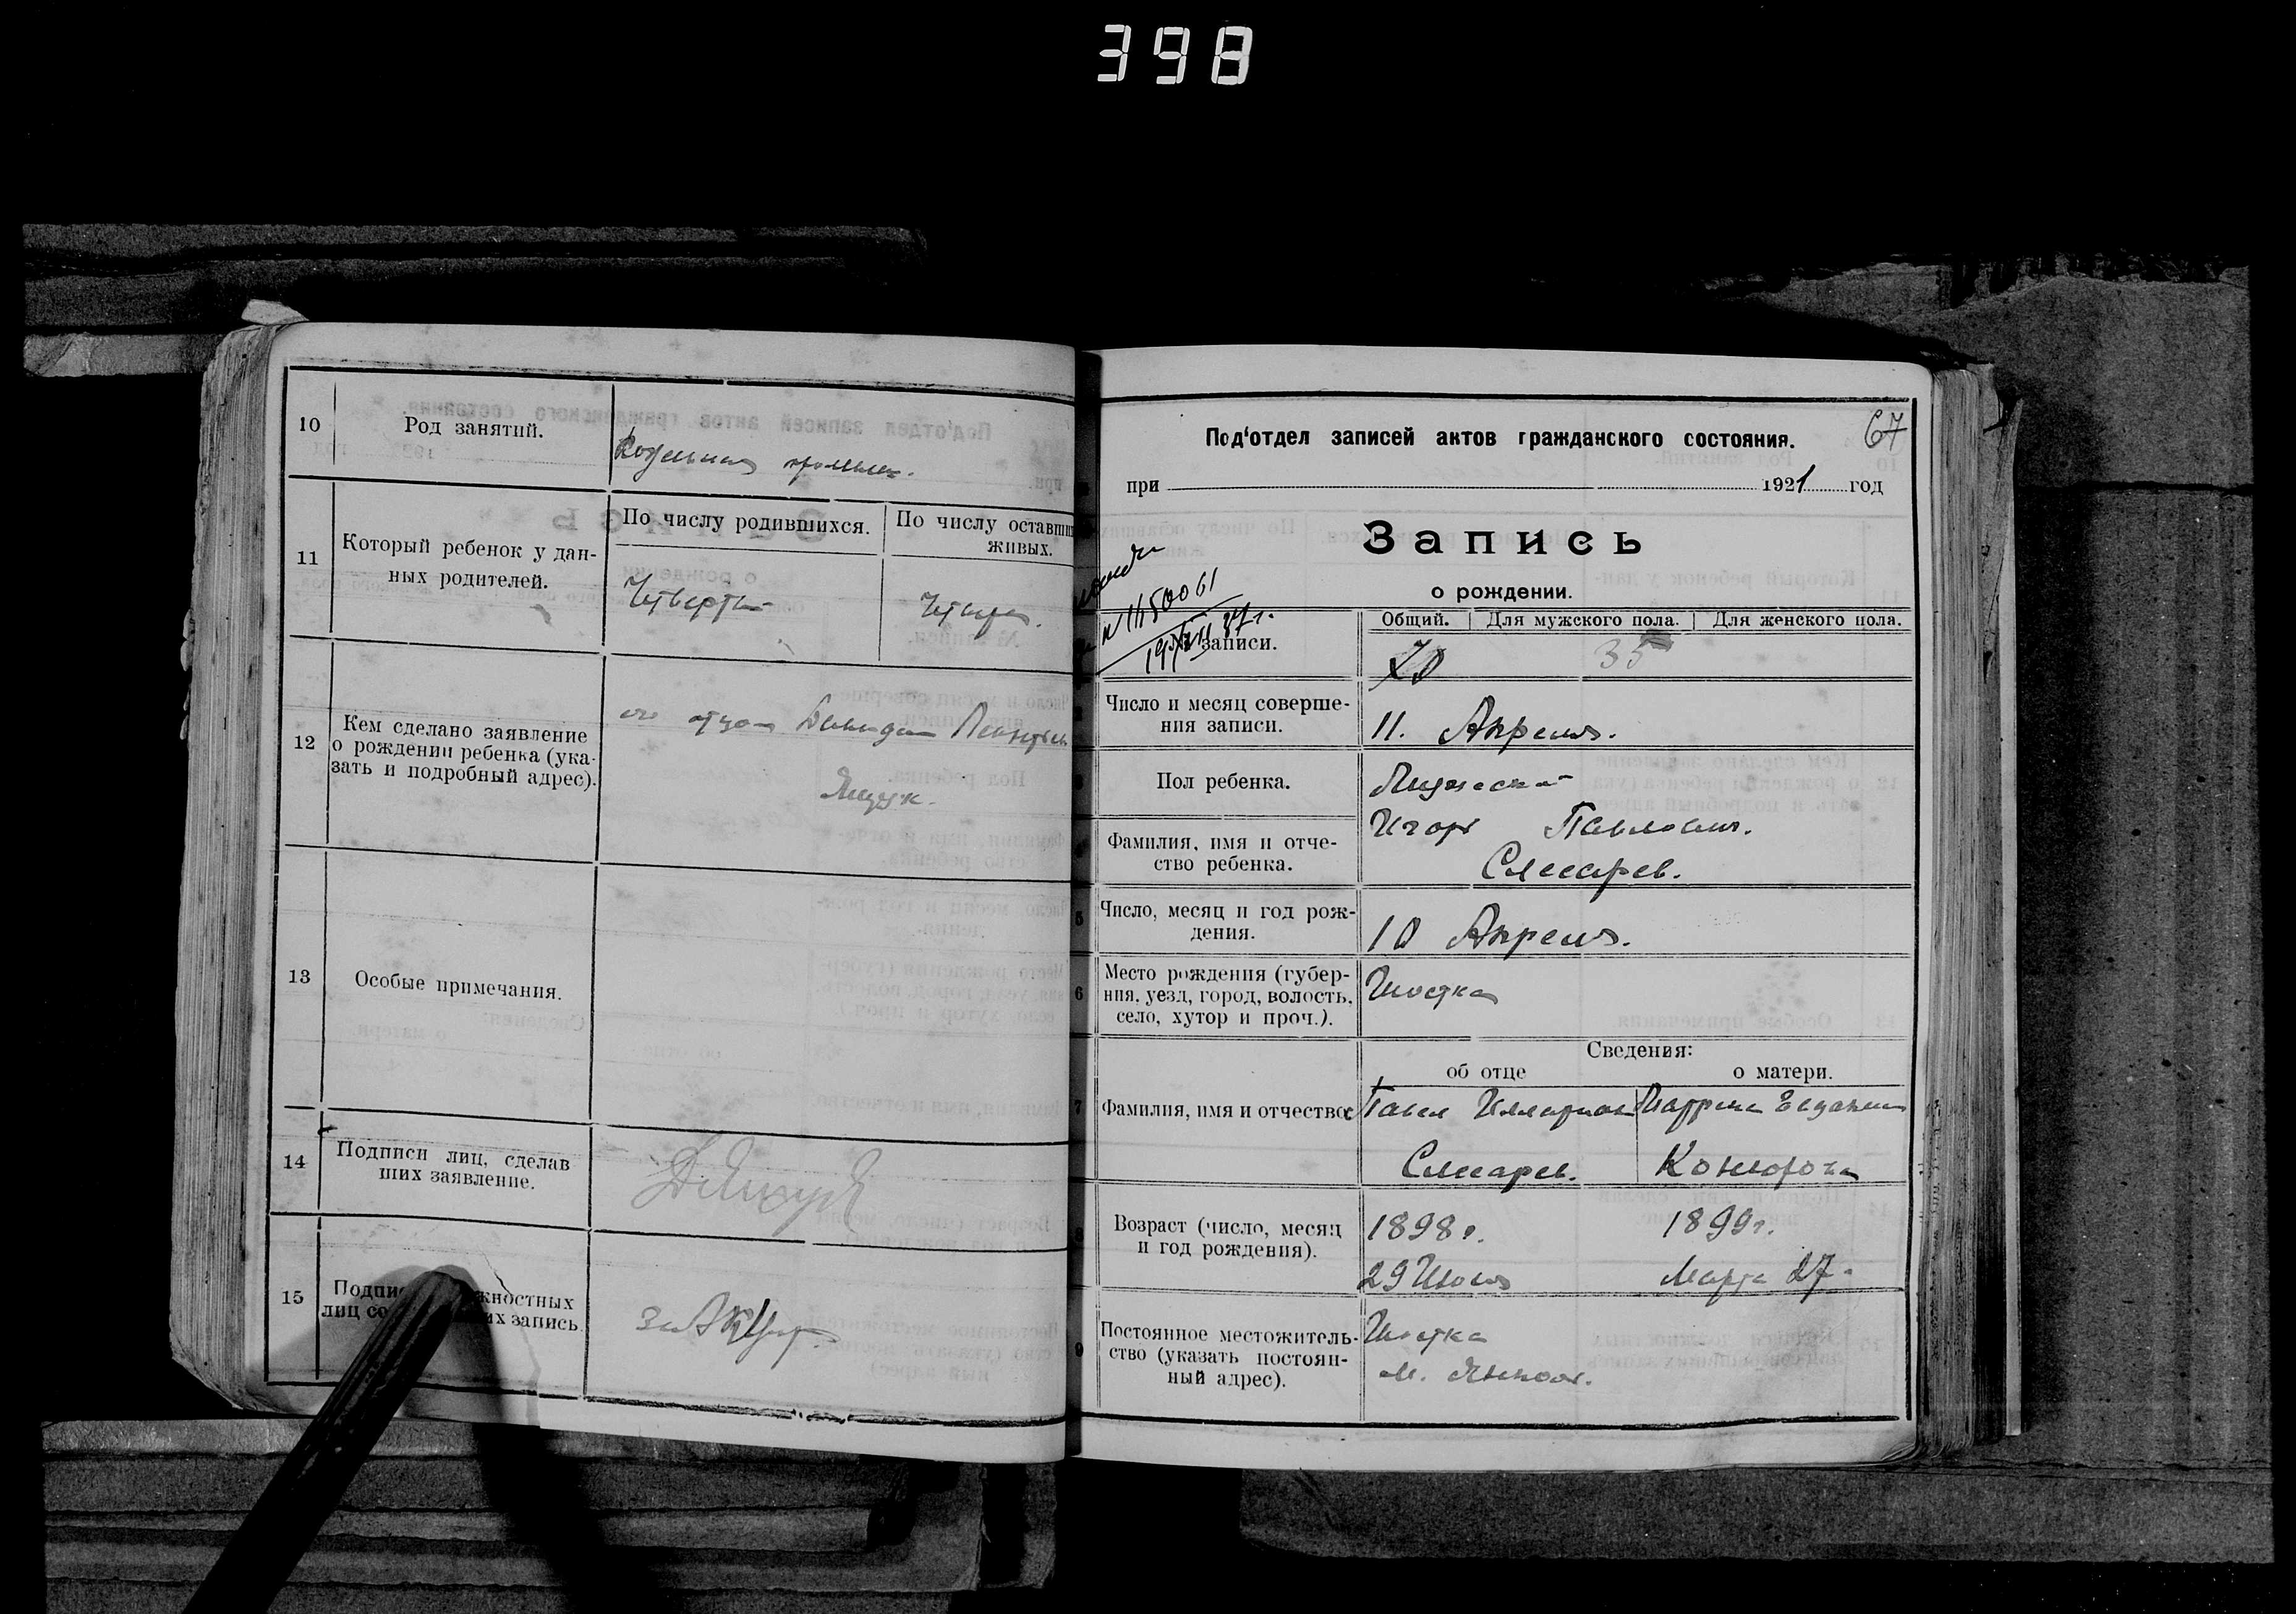 398
10
Род занятий.
11
Который ребенок у дан-
ных родителей.
По числу родившихся.
По числу оставши
живых.
Четвертый
Четверо.
12
Кем сделано заявление
о рождении ребенка (ука-
зать и подробный адрес).
отцом Давидом Леонтьев
Ящук.
13
Особые примечания.
14
Подписи лиц, сделав
ших заявление.
15
Подпис жностных
лиц со их запись.
67
Под'отдел записей актов гражданского состояния.
при 1921 год
Запись
о рождении.
№ 1150061
записи.
Общий. Для мужского пола. Для женского пола.
70 35
Число и месяц соверше-
ния записи.
11. Апреля.
Пол ребенка.
Мужской
Фамилия, имя и отче-
ство ребенка.
Игорь Павлович.
Слесарев.
5
Число, месяц и год рож-
дения.
10 Апреля.
6
Место рождения (губер-
ния, уезд, город, волость,
село, хутор и проч.).
Шостка
Сведения:
об отце
о матери.
7
Фамилия, имя и отчество
Павел Илларион
Слесарев.
8
Возраст (число, месяц
и год рождения).
1898 г.
1899 г.
Марта 27
9
Постоянное местожитель-
ство (указать постоян-
ный адрес).
Шостка